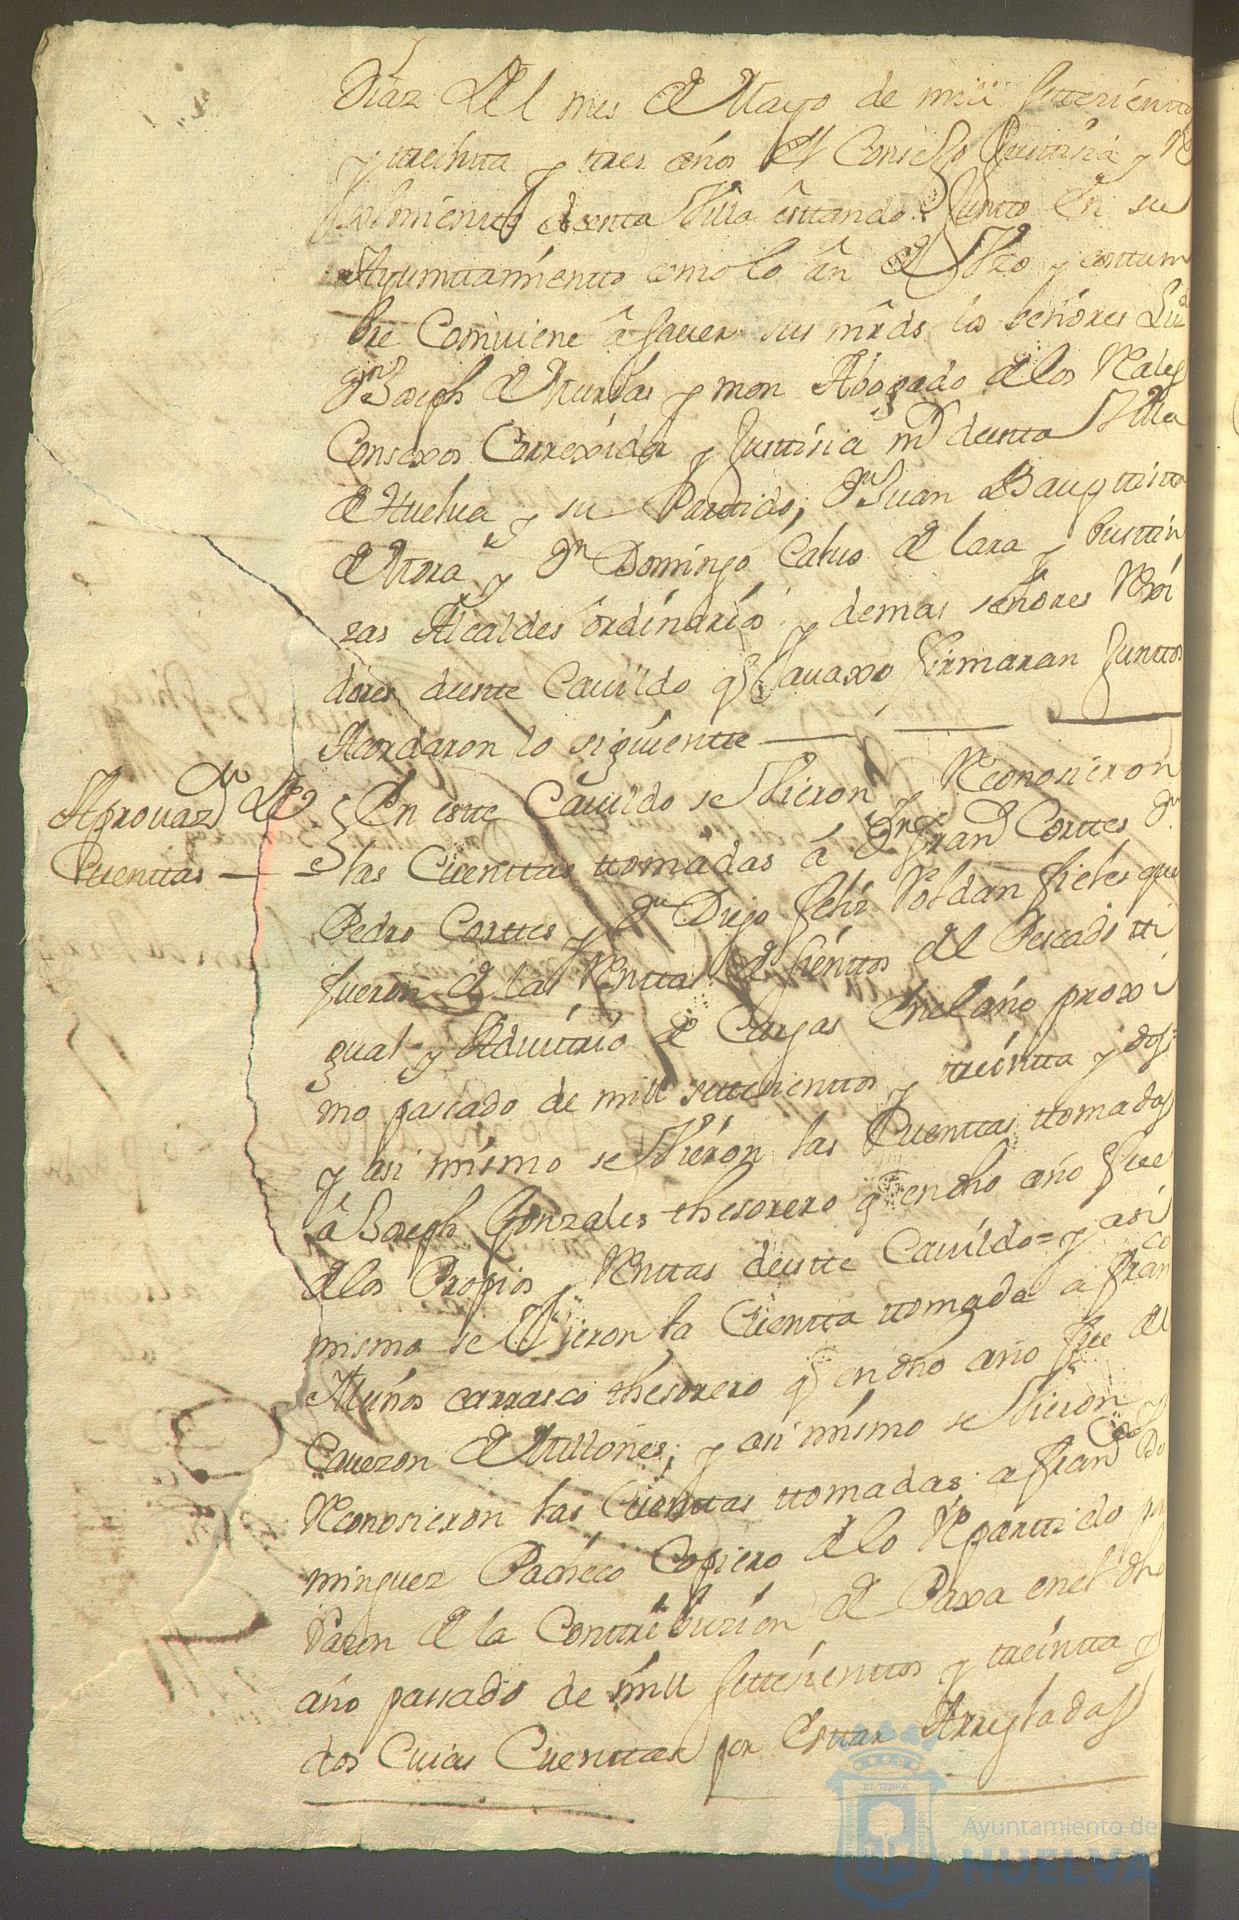 Diaz del mes de Mayo de mill settezientto
y treintta y tres años el Consejo Justtisia y Re
ximientto de estta Villa estando Juntto en su
Ayunttamientto como lo an de Uso y costtum
bre Conviene â saver sus mrds los señores Lizdo
Dn Joseph de Murias y mon Abogado de los Rales
Consexos Correxidor y Justtisia mr de estta Villa
de Huelva y su Parttido; Dn Juan Bauptista
de Mora y Dn Domingo Calvo de lara y
zas Alcaldes ordinarios y demas señores Rexi
dores de estte Cavildo q avaxo firmaran Junttos
Acordaron lo siguientte
Aprouazn de
Cuenttas
En estte Cavildo se Vieron y Reconosieron
las Cuenttas ttomadas â Dn Franco Corttes Dn
Pedro Corttes y Dn Diego Feliz Roldan fieles que
fueron de las Renttas de sienttos del Pescado tti
gual y Advittrio de Cargas en el año proxi
mo pasado de mill settesienttos y treintta y dos
y asi mismo se Vieron las Cuenttas ttomadas
â Joseph Gonzales thesorero q en dho año fue
de los Propios y Renttas de estte Cavildo = y asi
mismo se Vieron la Cuentta ttomada a Franco
Muños carrasco thesorero q en dho año fue del
Cavezon de Millones; y asi mismo se Vieron y
Reconosieron las Cuenttas ttomadas a Franco Do
minguez Pacheco Cojiero de lo Reparttido
Razon de la Conttribuzion de Paxa en el dho
año passado de mill settesienttos y treintta y
dos Cuias Cuenttas por Esttar Arregladas
EL TERRA
Ayuntamiento de
HUELVA